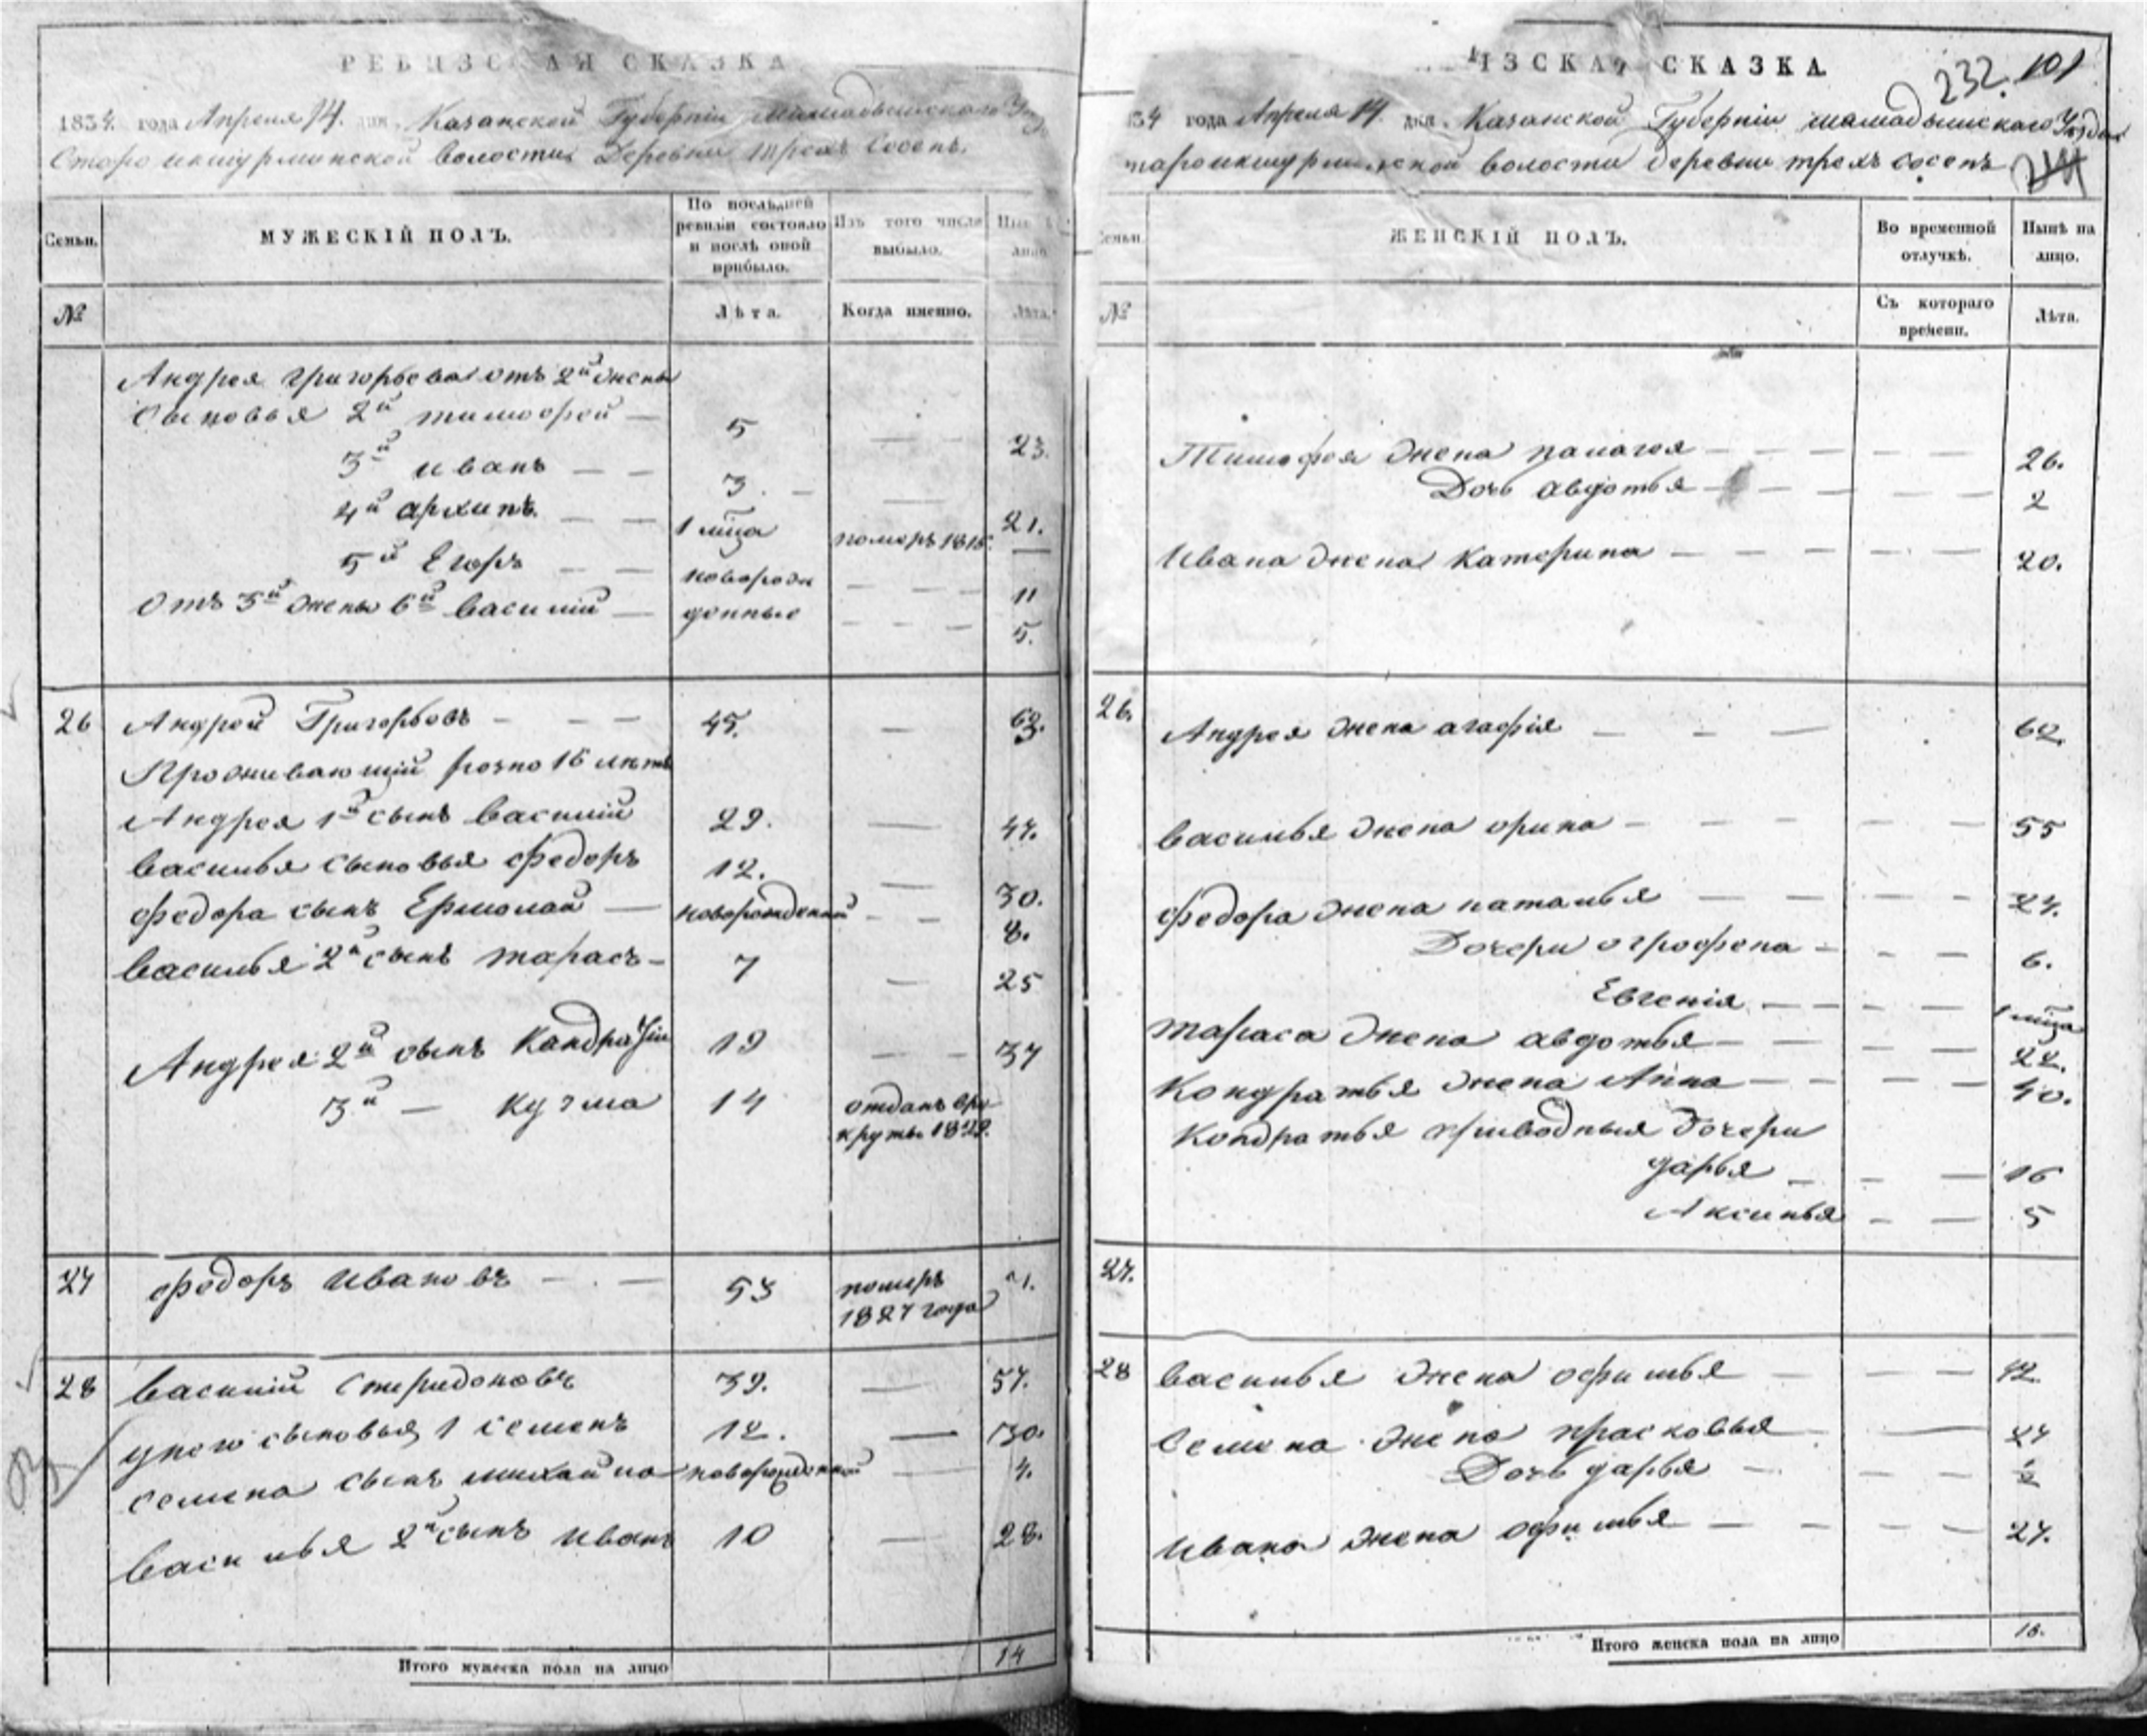 РЕВИЗСКАЯ СКАЗКА
1834 года Апреля 14. дня. Казанской Губернiи Мамадышскаго
Староикшурминской волости Деревни трехъ Сосенъ.
Семьи.
МУЖЕСКIЙ ПОЛЪ.
По послѣдней ревизiи состояло и послѣ оной прибыло.
Изъ того числа выбыло.
Нынѣ лицо
№
Лѣта.
Когда именно.
Лѣта.
Андрея григорьева отъ 2й жены
Сыновья 2й тимофей — 5 — 23.
3й иванъ — 3. — 21.
4й архипъ. — 1 мца померъ 1816. —
5й Егоръ — новорож — 11
отъ 3й жены 6й василiй — денные — 5.
26 Андрей Григорьевъ — 45. — 63.
Проживающiй розно 16 летъ
Андрея 1й сынъ василiй 29. — 47.
василья сыновья федоръ 12. — 30.
федора сынъ Ермолай — новорожденный — 8.
василья 2й сынъ тарасъ — 7 — 25
Андрея 2й сынъ Кондратiй 19 — 37
3й — кузма 14 отданъ врекруты 182
27 федоръ ивановъ — 53 померъ 1827 года
28 василiй спиридоновъ 39. — 57.
унего сыновья 1 семенъ 12. — 30.
семена сынъ михайла новорожденный — 4.
василья 2й сынъ иванъ 10 — 28.
Итого мужеска пола на лицо 14
ИЗСКАЯ СКАЗКА
232. 101
34 года Апреля 14. дня. Казанской Губернiи мамадышскаго Уезда
тароикшурминской волости деревни трехъ сосенъ
Семьи.
ЖЕНСКIЙ ПОЛЪ.
Во временной отлучкѣ.
Нынѣ на лицо.
№
Съ котораго времени.
Лѣта.
Тимофея жена палагея — 26.
Дочь авдотья — 2
Ивана жена Катерина — 20.
26. Андрея жена агафiя — 62.
василья жена орина — 55
федора жена наталья — 27.
Дочери огрофена — 6.
Евгенiя — 1 мца
тараса жена авдотья — 22.
Кондратья жена Анна — 40.
Кондратья приводныя дочери
дарья — 16
Аксинья — 5
27.
28 василья жена офимья — 42
семена жена прасковья — 27
Дочь дарья —
ивана жена офимья — 27.
Итого женска пола на лицо